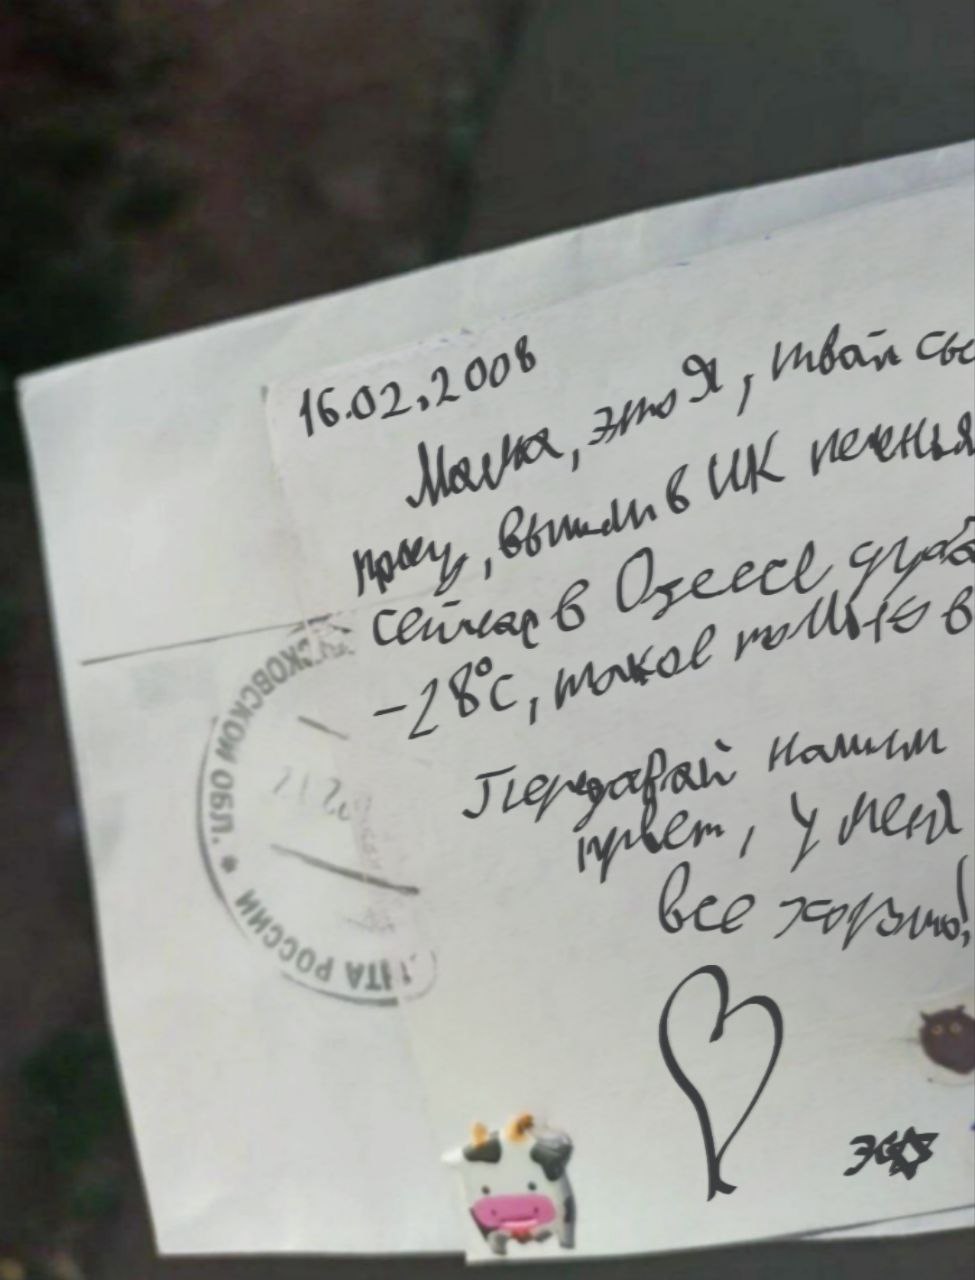 16.02.2008
Мамка, это я, твой сы
прошу, вышли в ИК печенья
сейчас в Одессе дуб
-28°C, такое только в
Передавай нашим
привет, у меня
все хорошо!
СКОВСКОЙ ОБЛ. * ЧТА РОССИИ